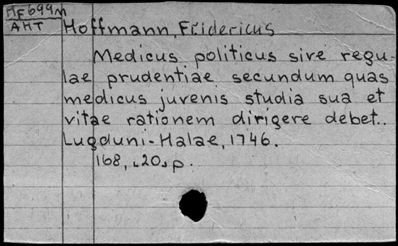 HF699m
AHT Hoffmann, Fridericus
Medicus politicus sive regu-
lae prudentiae secundum quas
medicus juvenis studia sua et
vitae rationem dirigere debet..
Lugduni-Halae, 1746.
168, 20, p.